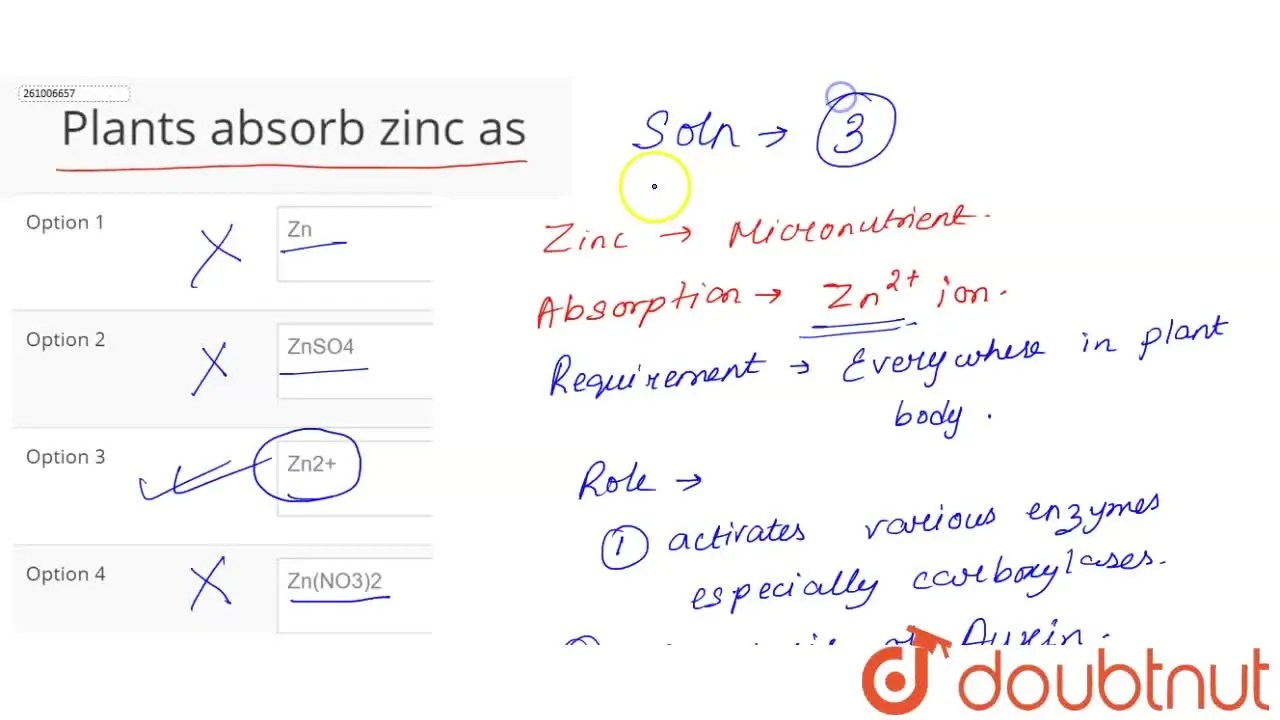 261006657
Plants absorb zinc as
Option 1
Zn
Option 2
ZnSO4
Option 3
Zn2+
Option 4
Zn(NO3)2
Soln → 3
Zinc → Micronutrient.
Absorption → Zn²⁺ ion.
Requirement → Everywhere in plant
body.
Role →
① activates various enzymes
especially carboxylases.
of Auxin.
doubtnut